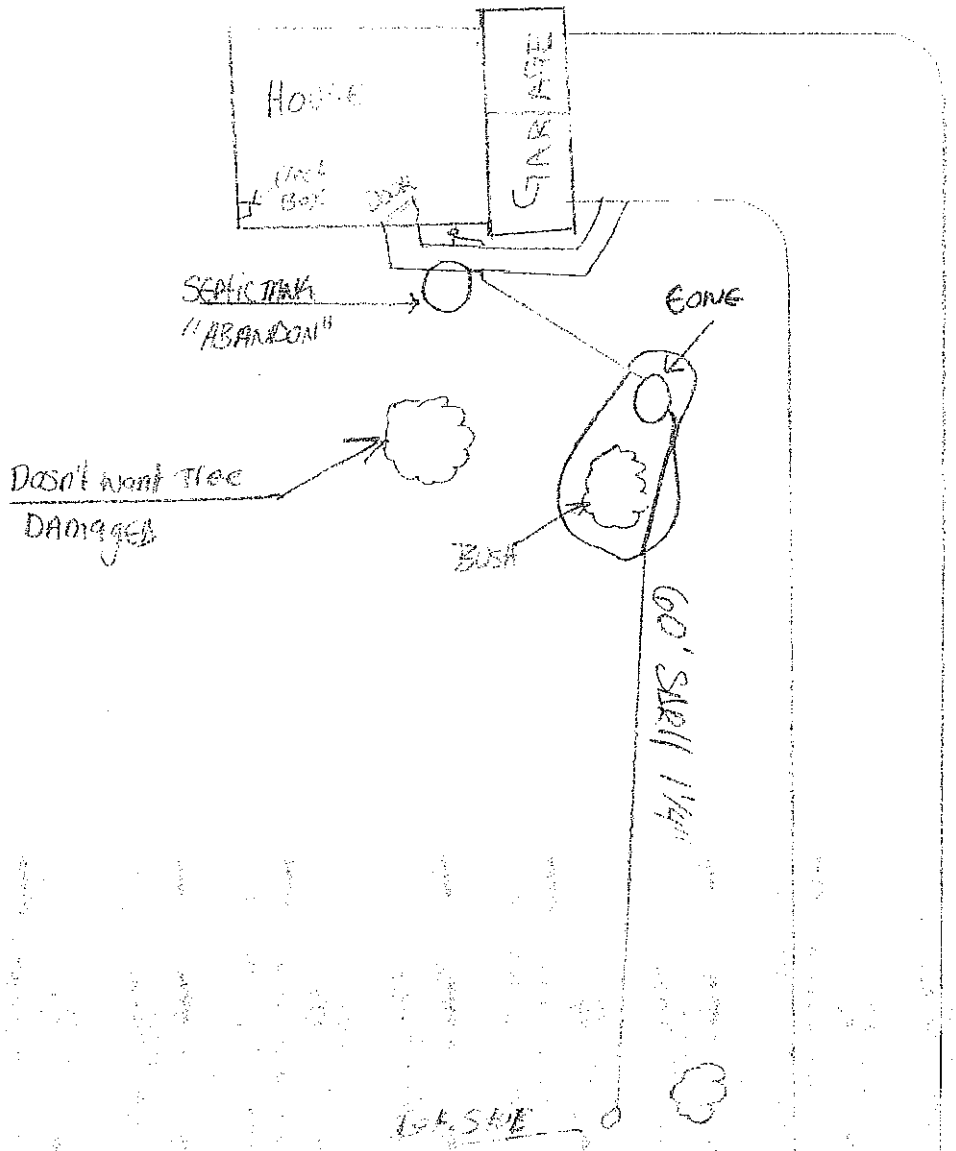 HOUSE
GARAGE
BOX
SEPTIC TANK
"ABANDON"
EONE
Dosn't want Tree
DAMAGED
BUSH
60' 1 1/4"